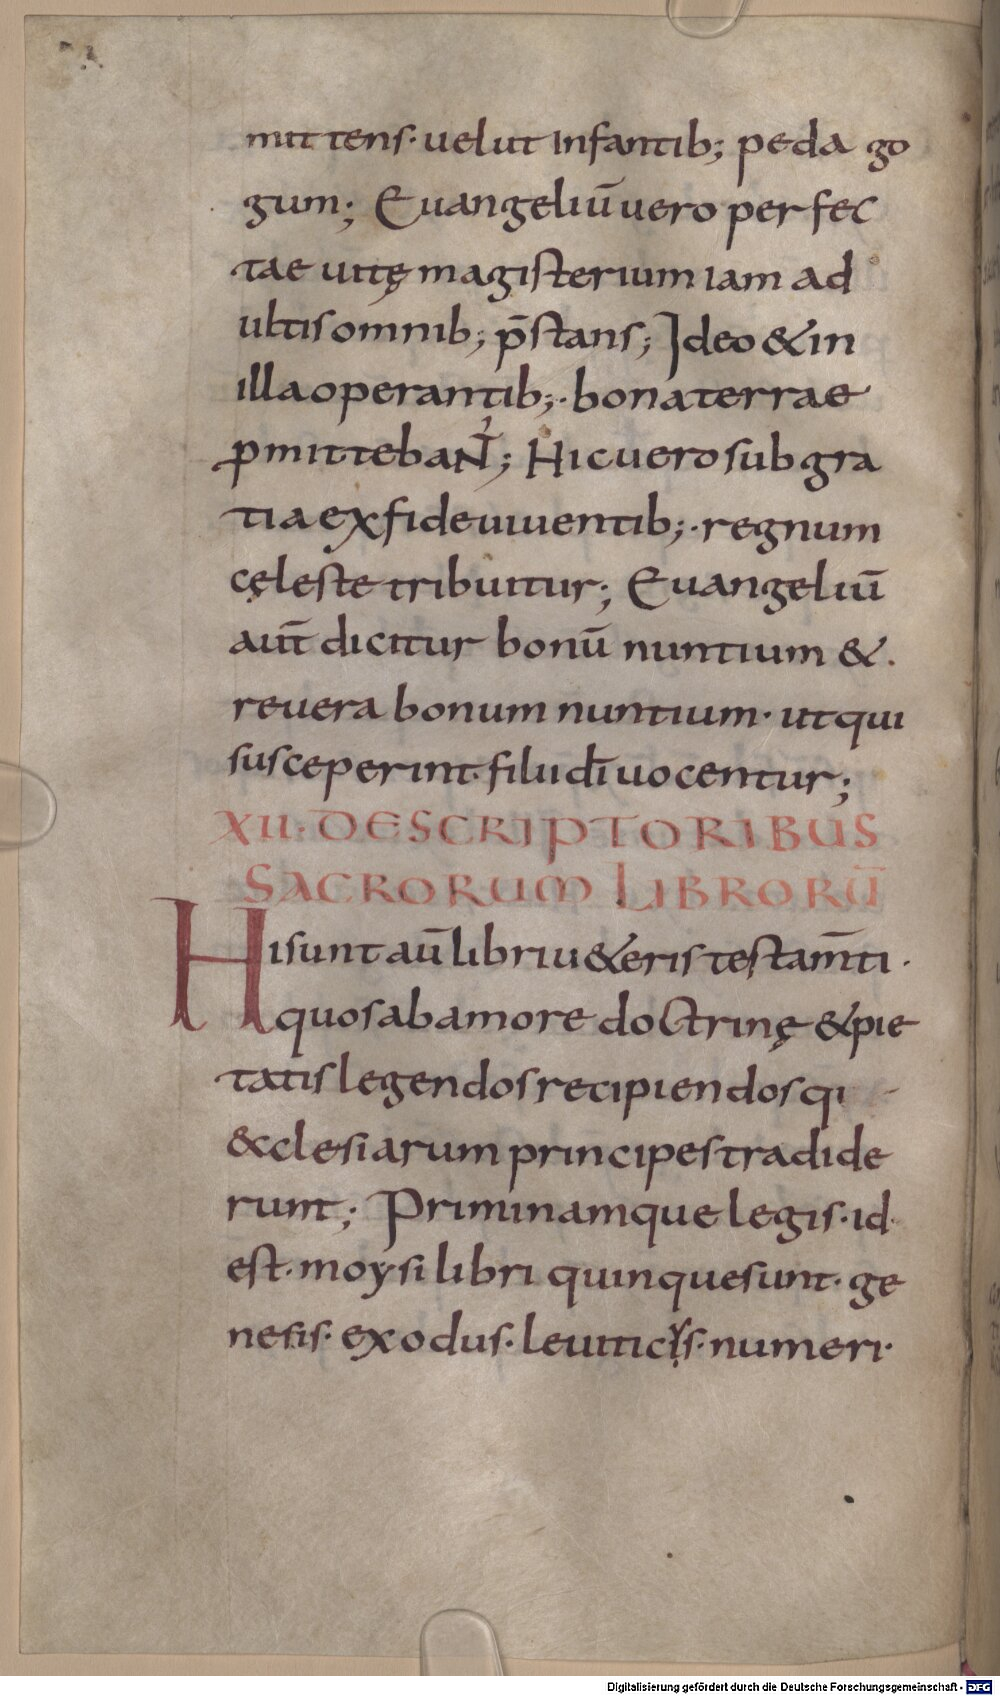 mittens· uelut Infantib; peda go
gum; Euangeliū uero perfec
tae uitę magisterium iam ad
ultis omnib; p̄stans; Ideo & in
illa operantib;· bona terrae
ꝓmittebaNT̄; Hic uero sub gra
tia ex fide uiuentib;· regnum
cęleste tribuitur; Euangeliū
aut̄ dicitur bonū nuntium &·
reuera bonum nuntium· ut qui
susceperint· filii dī uocentur;
XII· DE SCRIPTORIBUS
SACRORUM LIBRORŪ
Hi sunt aū libri u&eris testam̄ti·
quos ab amore doctrinę & pie
tatis legendos recipiendosq;
&cclesiarum principes tradide
runt; Primi namque legis· id
est· moysi libri quinque sunt· ge
nesis· exodus· leuiticꝰs· numeri·
Digitalisierung gefördert durch die Deutsche Forschungsgemeinschaft - DFG